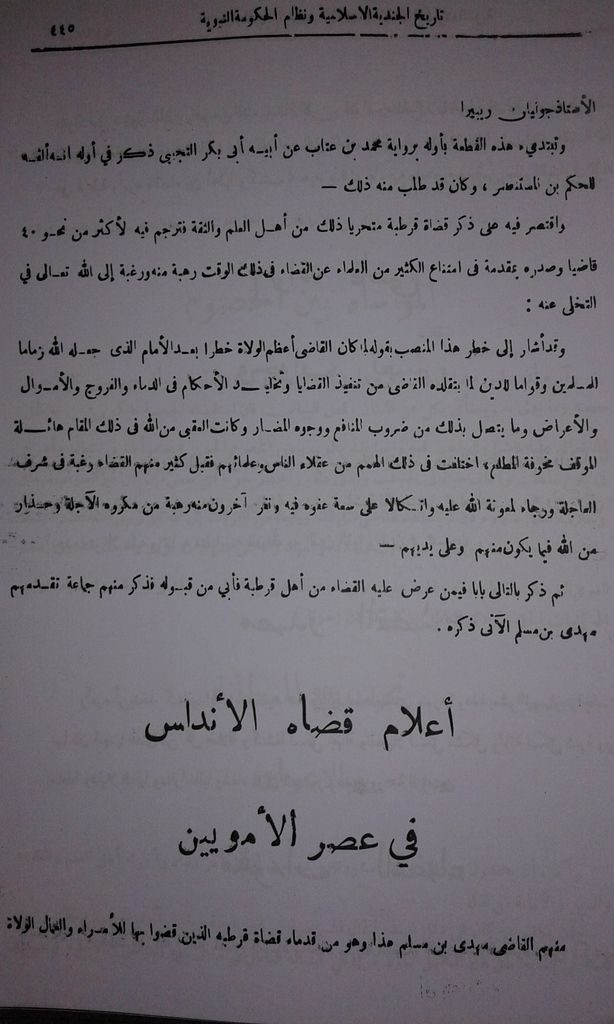 تاريخ الجندية الاسلامية ونظام الحكومة النبوية
٤٤٥
الأستاذ جوليان ريبيرا
وتبتدىء هذه القطعة بأوله برواية محمد بن عتاب عن أبيه أبى بكر التجيبى ذكر في أوله انه ألفه
للحكم بن المستنصر ، وكان قد طلب منه ذلك —
واقتصر فيه على ذكر قضاة قرطبة متحريا ذلك من أهل العلم والثقة فترجم فيه لأكثر من نحو ٤٠
قاضيا وصدره بمقدمة فى امتناع الكثير من العلماء عن القضاء فى ذلك الوقت رهبة منه ورغبة إلى الله تعالى في
التخلى عنه :
وقد أشار إلى خطر هذا المنصب بقوله لما كان القاضى أعظم الولاة خطرا بعد الأمام الذى جعله الله زماما
للمسلمين وقواما للدين لما يتقلده القاضى من تنفيذ القضايا وتخليد الأحكام فى الدماء والفروج والأموال
والأعراض وما يتصل بذلك من ضروب المنافع ووجوه المضار وكانت العقبى من الله فى ذلك المقام هائلة
الموقف مخوفة المطلع، اختلفت فى ذلك الهمم من عقلاء الناس وعلمائهم فقبل كثير منهم القضاء رغبة فى شرف
العاجلة ورجاء لمعونة الله عليه واتكالا على سعة عفوه فيه ونفر آخرون منه رهبة من مكروه الآجلة وحذار
من الله فيما يكون منهم وعلى يديهم —
ثم ذكر بالتالى بابا فيمن عرض عليه القضاء من أهل قرطبة فأبي من قبوله فذكر منهم جماعة تقدمهم
مهدى بن مسلم الآتى ذكره .
أعلام قضاه الأندلس
في عصر الأمويين
منهم القاضى مهدى بن مسلم هذا وهو من قدماء قضاة قرطبه الذين قضوا بها للأمراء والعمال الولاة